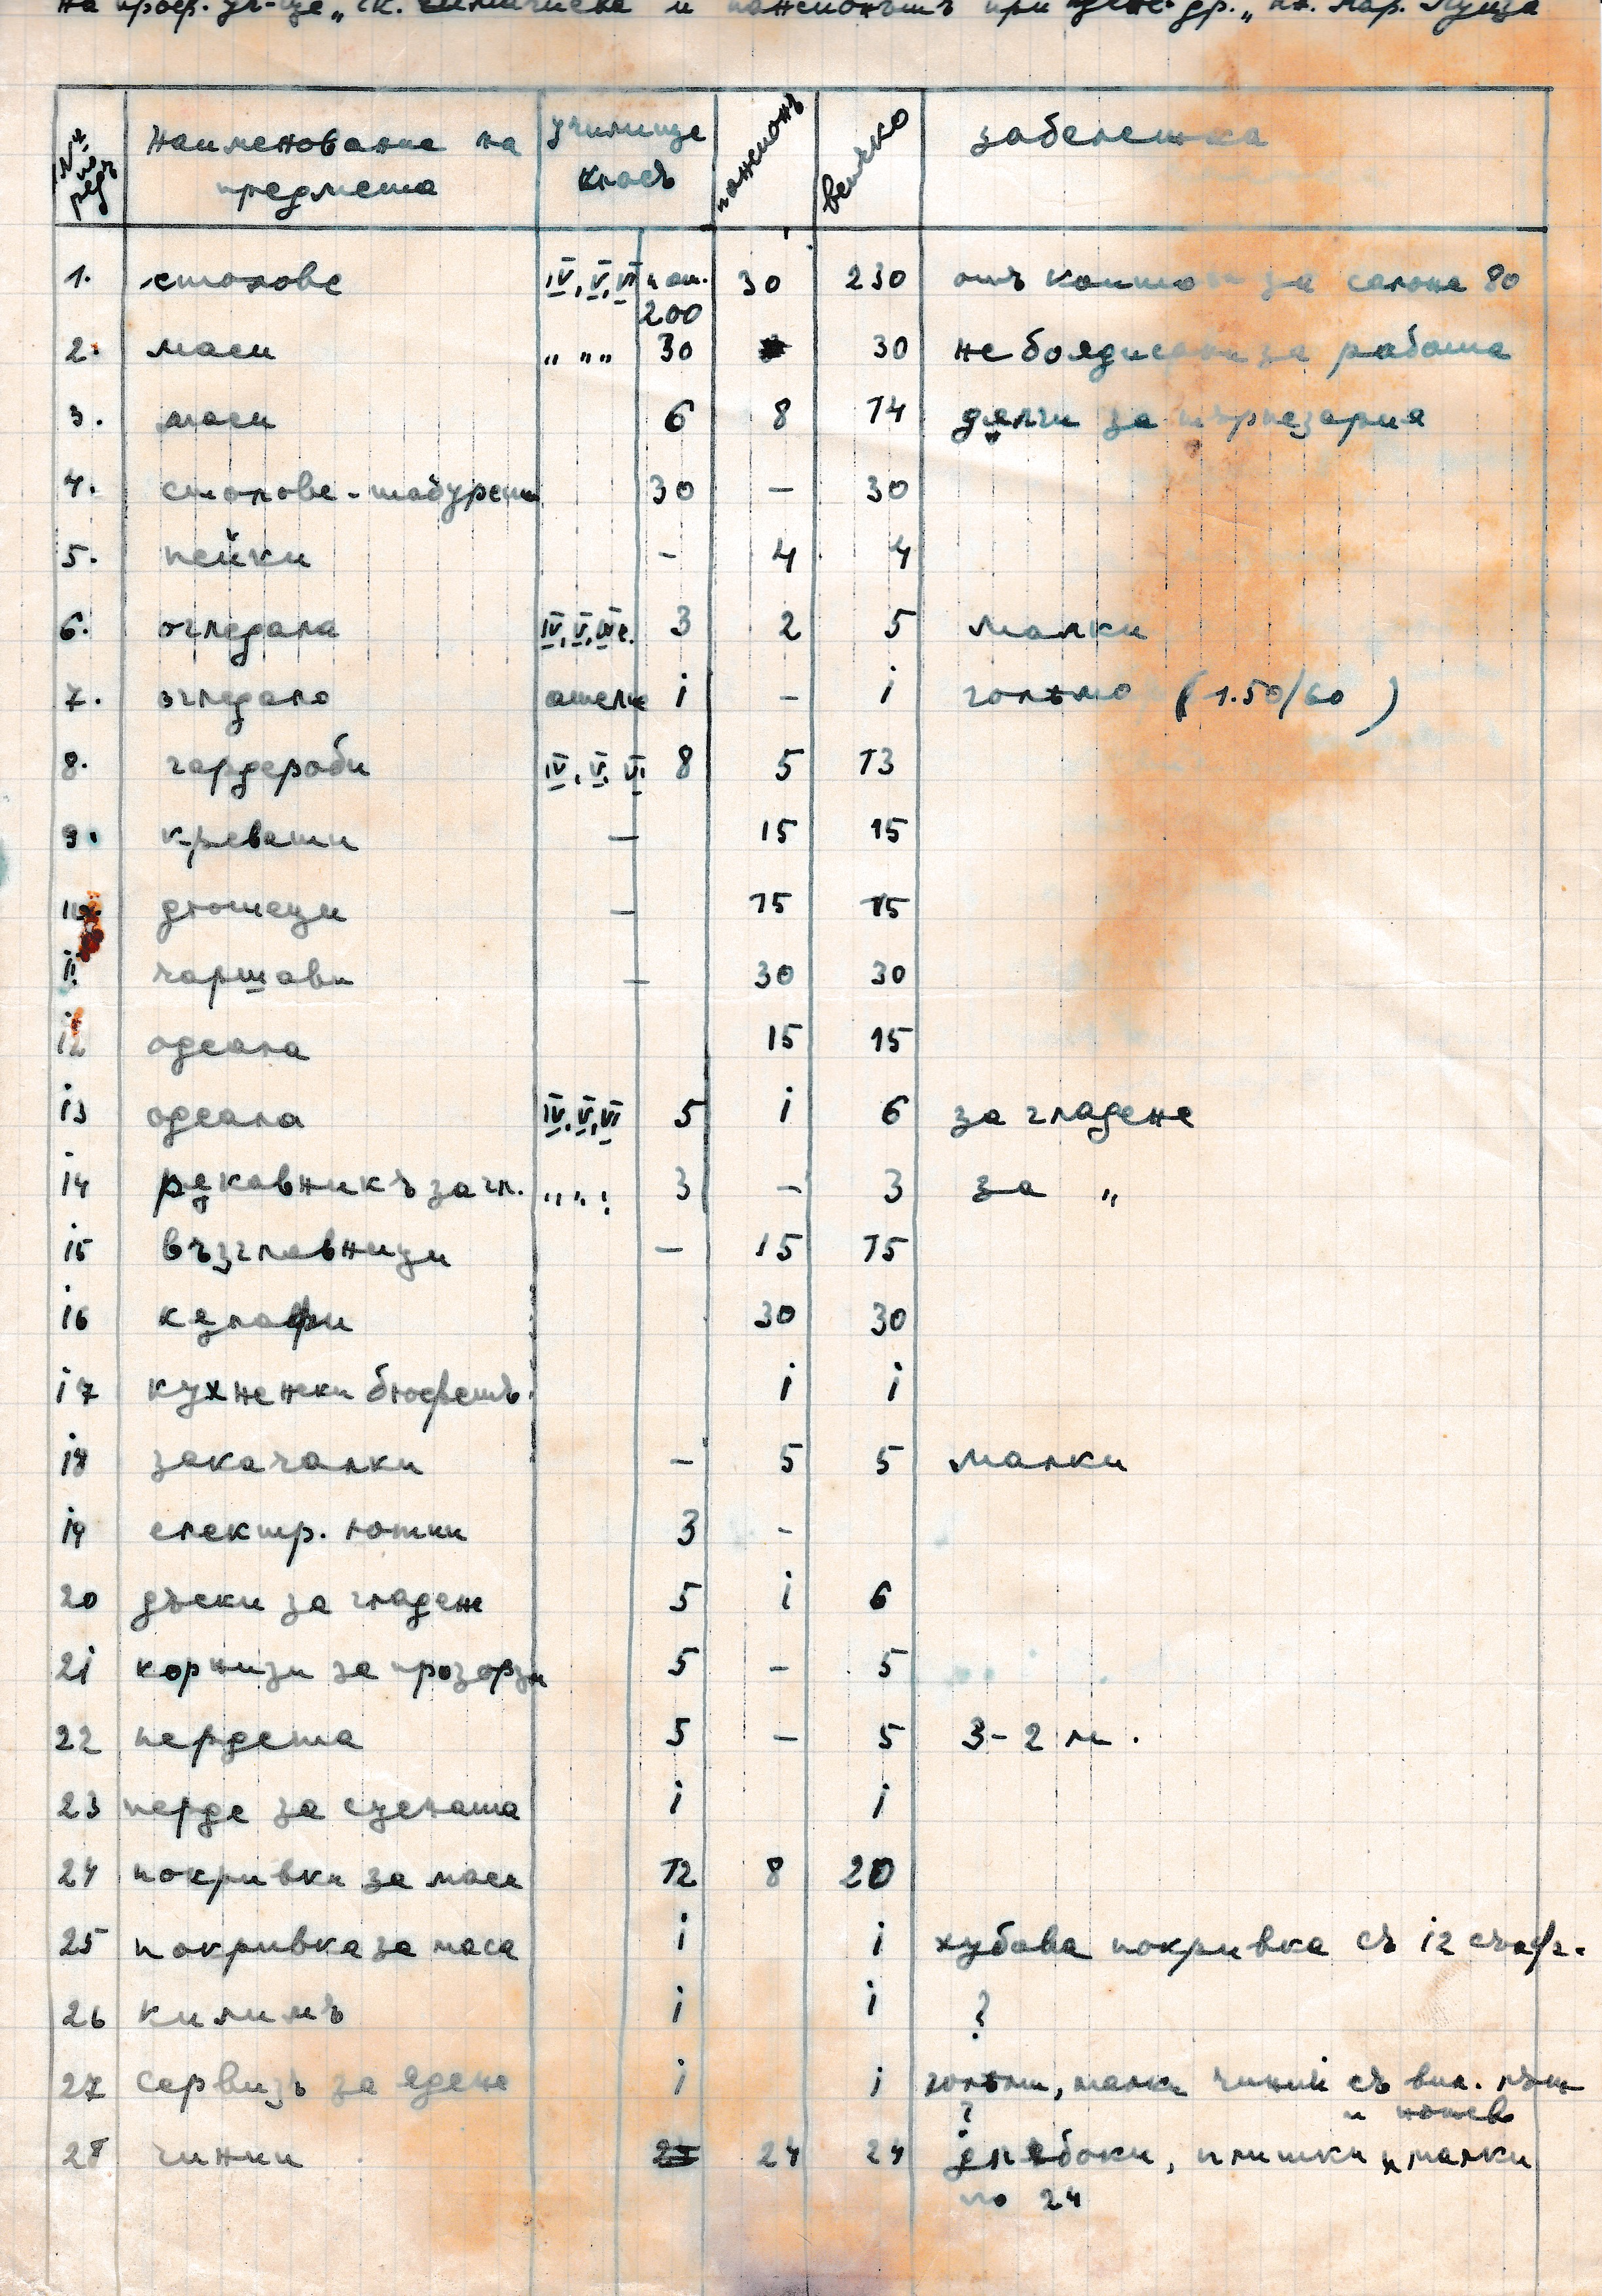 на проф. уч-ще „Ск. и пансионътъ при жен. др. „
№ по редъ Наименование на предмета училище класъ пансионъ всичко забележка
1. столове IV, V, VI 200 30 230 отъ коитo за салона 80
2. маси „ „ „ 30 30 не боядисани за работа
3. маси 6 8 14 дѫлги за тѣрпезария
4. столове - табуретки 30 – 30
5. пейки – 4 4
6. огледала IV, V, VI 3 2 5 малки
7. огледало ателие i – i голѣмо (1.50/60)
8. гардероби IV, V, VI 8 5 13
9. кревати – 15 15
10. дюшеци – 15 15
11. чаршави – 30 30
i2 одеала 15 15
i3 одеала IV, V, VI 5 i 6 за гладене
i4 рѫкавникъ за гл. „ „ „ 3 – 3 за „
i5 възглавници – 15 15
i6 кѫлафи 30 30
i7 кухненски бюфетъ i i
i8 закачалки – 5 5 малки
i9 електр. ютии 3 –
20 дъски за гладене 5 i 6
2i корнизи за прозорци 5 – 5
22 пердета 5 – 5 3 – 2 м.
23 перде за сцената i i
24 покривки за маси 12 8 20
25 покривка за маса i i хубава покривка съ i2
26 килимъ i i ?
27 сервизъ за ядене i i голѣми, малки чинии съ вил. лъж
? и ножов
28 чинии 24 24 24 дѫлбоки, плитки и малки
по 24